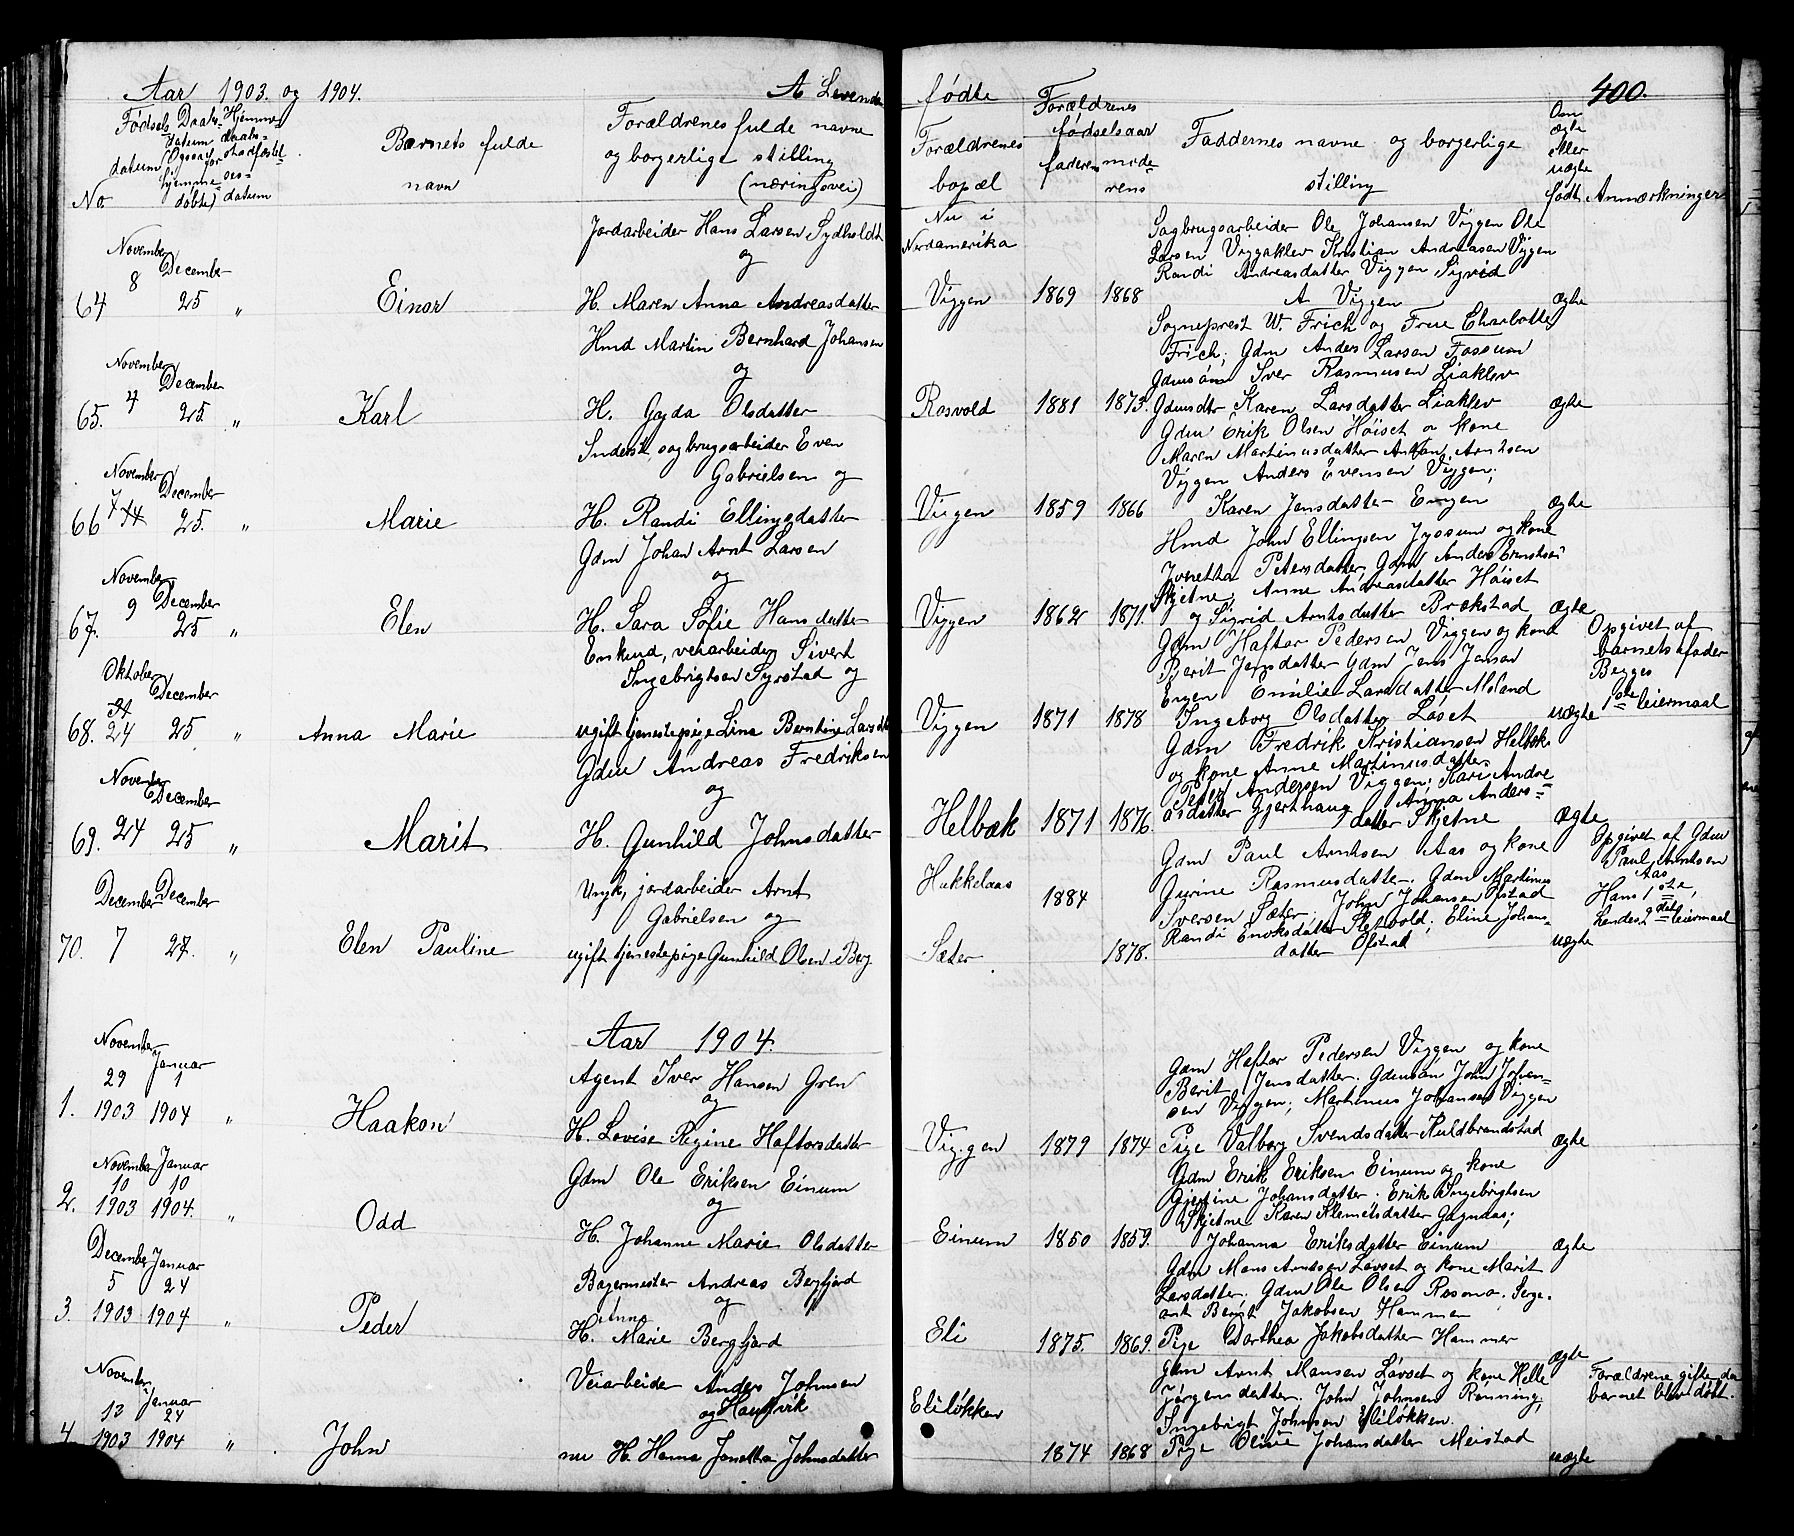 Aar 1903. og 1904. A Levende fødte 400.
No Fødselsdatum Daabsdatum (Ogsaa for hjemmedøbte) Hjemmedaabs- stadfæstelsesdatum
Barnets fulde navn
Forældrenes fulde navne og borgerlige stilling (næringsvei)
Forældrenes bopæl
Forældrenes fødselsaar faderens moderens
Faddernes navne og borgerlige stilling
Om ægte eller uægte født
Anmærkninger
64 November 8 December 25 „ Einar
Jordarbeider Hans Larsen Sydholdt
og
H. Maren Anna Andreasdatter
Nu i Nordamerika
Viggen 1869 1868
Sagbrugsarbeider Ole Johansen Viggen Ole
Larsen Viggakler Kristian Andreasen Viggen
Randi Andreasdatter Viggen Sigrid
A Viggen
ægte
65. November 4 December 25. „ Karl
Hmd Martin Bernhard Johansen
og
H. Gyda Olsdatter
Rosvold 1881 1873.
Sogneprest W. Frich og Frue Charlotte
Frich; Gdm Anders Larsen Fossum
Gdmsøn Iver Rasmusen Liaklev
Gdmsdtr Karen Larsdatter Liaklev
ægte
66 November 7 14 December 25. „ Marie
Inderst, sagbrugsarbeider Even
Gabrielsen og
H. Randi Ellingsdatter
Viggen 1859 1866
Gdm Erik Olsen Høiset o kone
Maren Martinusdatter Anton Arntsen
Viggen Anders Evensen Viggen;
Karen Jensdatter Engen
ægte
67. November 9 December 25 „ Elen
Gdm Johan Arnt Larsen
og
H. Sara Sofie Hansdatter
Viggen 1862 1871.
Hmd John Ellingsen Jyssum og kone
Iveretta Petersdatter, Gdm Anders
Skjetne, Anne Andreasdatter Høiset
og Sigrid Arntsdatter Brækstad
ægte
68. Oktober 24 December 25 „ Anna Marie
Enkmd, veiarbeider Sivert
Ingebrigtsen Syrstad og
ugift tjenestepige Lina Berntine Larsdtr
Viggen 1871 1878
Gdm Haftor Pedersen Viggen og kone
Berit Jensdatter Gdm Jens Jensen
Engen Emilie Larsdatter Moland
Ingeborg Olsdatter Løset
uægte
Opgivet af
barnets fader
Begges
1ste leiermaal
69. November 24 December 25 „ Marit
Gdm Andreas Fredriksen
og
H. Gunhild Johnsdatter
Helbæk 1871 1876.
Gdm Fredrik Kristiansen Helbæk
og kone Anne Martinusdatter
Peder Andersen Viggen; Kari Andre
asdatter Gjerthaug, Anna Anders=
datter Skjetne
ægte
70. December 7 December 27. „ Elen Pauline
Ungk, jordarbeider Arnt
Gabrielsen og
ugift tjenestepige Gunhild Olsen Berg
Hukkelaas 1884
Sæter 1878.
Gdm Paul Arntsen Aas og kone
Gurine Rasmusdatter. Gdm Martinus
Iversen Sæter; John Johansen Ofstad
Randi Enoksdatter Sletvold; Eline Johans-
datter Ofstad
uægte
Opgivet af Gdm
Paul Arntsen
Aas
Hans 1ste,
hendes 2det leiermaal
Aar 1904.
1. November 29 1903 Januar 1 1904 „ Haakon
Agent Iver Hansen Gren
og
H. Lovise Regine Haftorsdatter
Viggen 1879 1874
Gdm Haftor Pedersen Viggen og kone
Berit Jensdatter. Gdmsøn John Johan-
sen Viggen; Martinus Johansen Viggen
Pige Valborg Svendsdatter Kuldbrandstad
ægte
2. November 10 1903 Januar 10 1904. „ Odd
Gdm Ole Eriksen Einum
og
H. Johanne Marie Olsdatter
Einum 1850 1859.
Gdm Erik Eriksen Einum og kone
Gjertine Johansdatter. Erik Ingebrigtsen
Skjetne Karen Klemetsdatter Gaganaas;
Johanna Eriksdatter Einum
ægte
3. December 5 1903 Januar 24 1904 „ Peder
Bagermester Andreas Bergfjord
og
H. Anna Marie Bergfjord
Eli 1875. 1869.
Gdm Mons Arntsen Løvset og kone Marit
Larsdatter; Gdm Ole Olsen Rosmo. Serge-
ant Bernt Jakobsen Hammer
Pige Dorthea Jakobsdatter Hammer
ægte
4. November 12 1903 Januar 24 1904 „ John
Veiarbeider Anders Johnsen
og Haukvik
nu H. Hanna Jonetta Johnsdatter
Eliløkken
1874 1868
Gdm Arnt Monsen Løvset og kone Helle
Jørgensdatter. John Johnsen Rønning;
Ingebrigt Johnsen Eliløkken.
Pige Oline Johansdatter Meistad
uægte
Forældrene gifte da
barnet blev døbt.